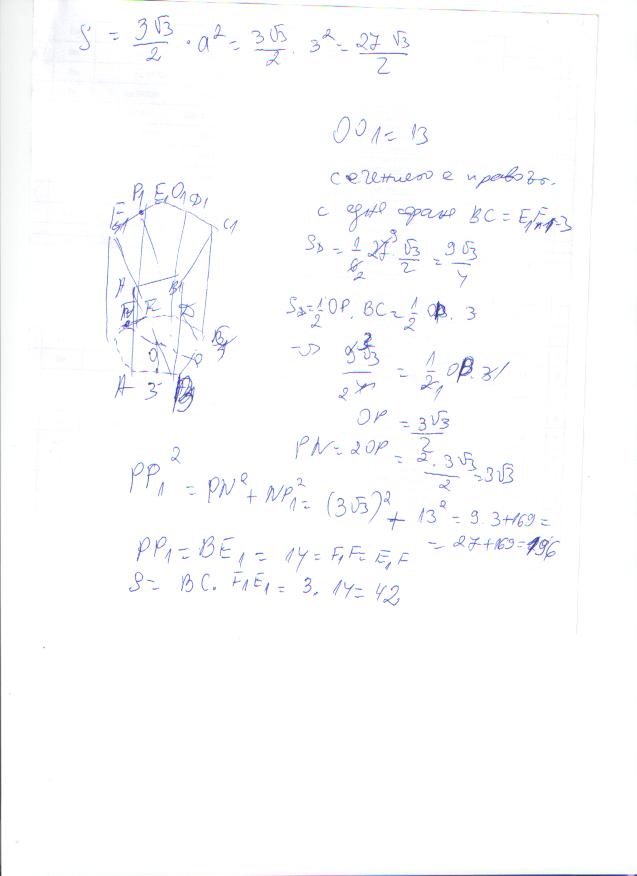 S = 3√3/2 · a² = 3√3/2 · 3² = 27√3/2
OO₁ = 13
сечението е правоъг.
с една стран BC = E₁F₁ = 3
S = 1/6 27 · √3/2 = 9√3/4
S = 1/2 OP . BC = 1/2 OP . 3
=> 9√3/4 = 1/2 OP . 3
OP = 3√3/2
PN = 2OP = 2 . 3√3/2 = 3√3
PP₁² = PN² + NP₁² = (3√3)² + 13² = 9.3+169 =
= 27+169=196
PP₁ = BE₁ = 14 = F₁F = E₁F
S = BC . F₁E₁ = 3. 14 = 42
P₁ E₁ O₁ D₁
F₁ C₁
A B
O
A 3 B